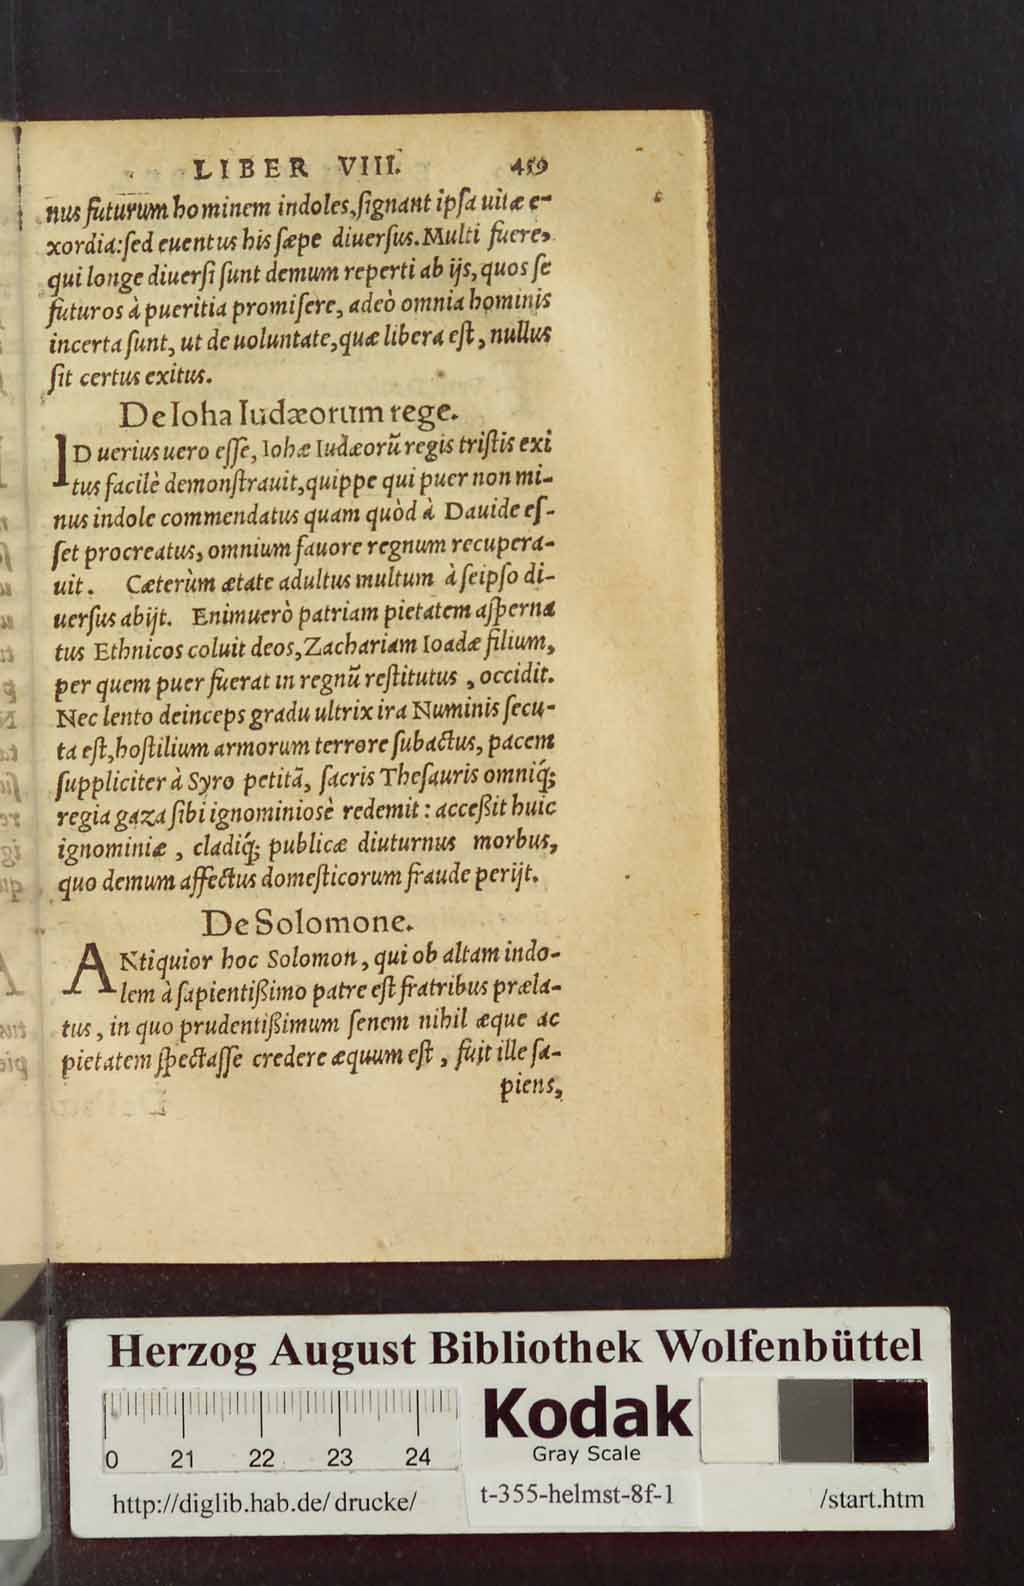 LIBER VIII. 459
nus futurum hominem indoles, signant ipsa uitæ e-
xordia: sed euentus his sæpe diuersus. Multi fuere,
qui longe diuersi sunt demum reperti ab ijs, quos se
futuros à pueritia promisere, adeò omnia hominis
incerta sunt, ut de uoluntate, quæ libera est, nullus
sit certus exitus.
De Ioha Iudæorum rege.
ID uerius uero esse, Iohæ Iudæorũ regis tristis exi
tus facilè demonstrauit, quippe qui puer non mi-
nus indole commendatus quam quòd à Dauide es-
set procreatus, omnium fauore regnum recupera-
uit. Cæterùm ætate adultus multum à seipso di-
uersus abijt. Enimuerò patriam pietatem asperna
tus Ethnicos coluit deos, Zachariam Ioadæ filium,
per quem puer fuerat in regnũ restitutus, occidit.
Nec lento deinceps gradu ultrix ira Numinis secu-
ta est, hostilium armorum terrore subactus, pacem
suppliciter à Syro petitã, sacris Thesauris omniq́;
regia gaza sibi ignominiosè redemit: acceßit huic
ignominiæ, cladiq́; publicæ diuturnus morbus,
quo demum affectus domesticorum fraude perijt.
De Solomone.
ANtiquior hoc Solomon, qui ob altam indo-
lem à sapientißimo patre est fratribus præla-
tus, in quo prudentißimum senem nihil æque ac
pietatem spectasse credere æquum est, fuit ille sa-
piens,
Herzog August Bibliothek Wolfenbüttel
0 21 22 23 24
Kodak
Gray Scale
http://diglib.hab.de/drucke/ t-355-helmst-8f-1 /start.htm